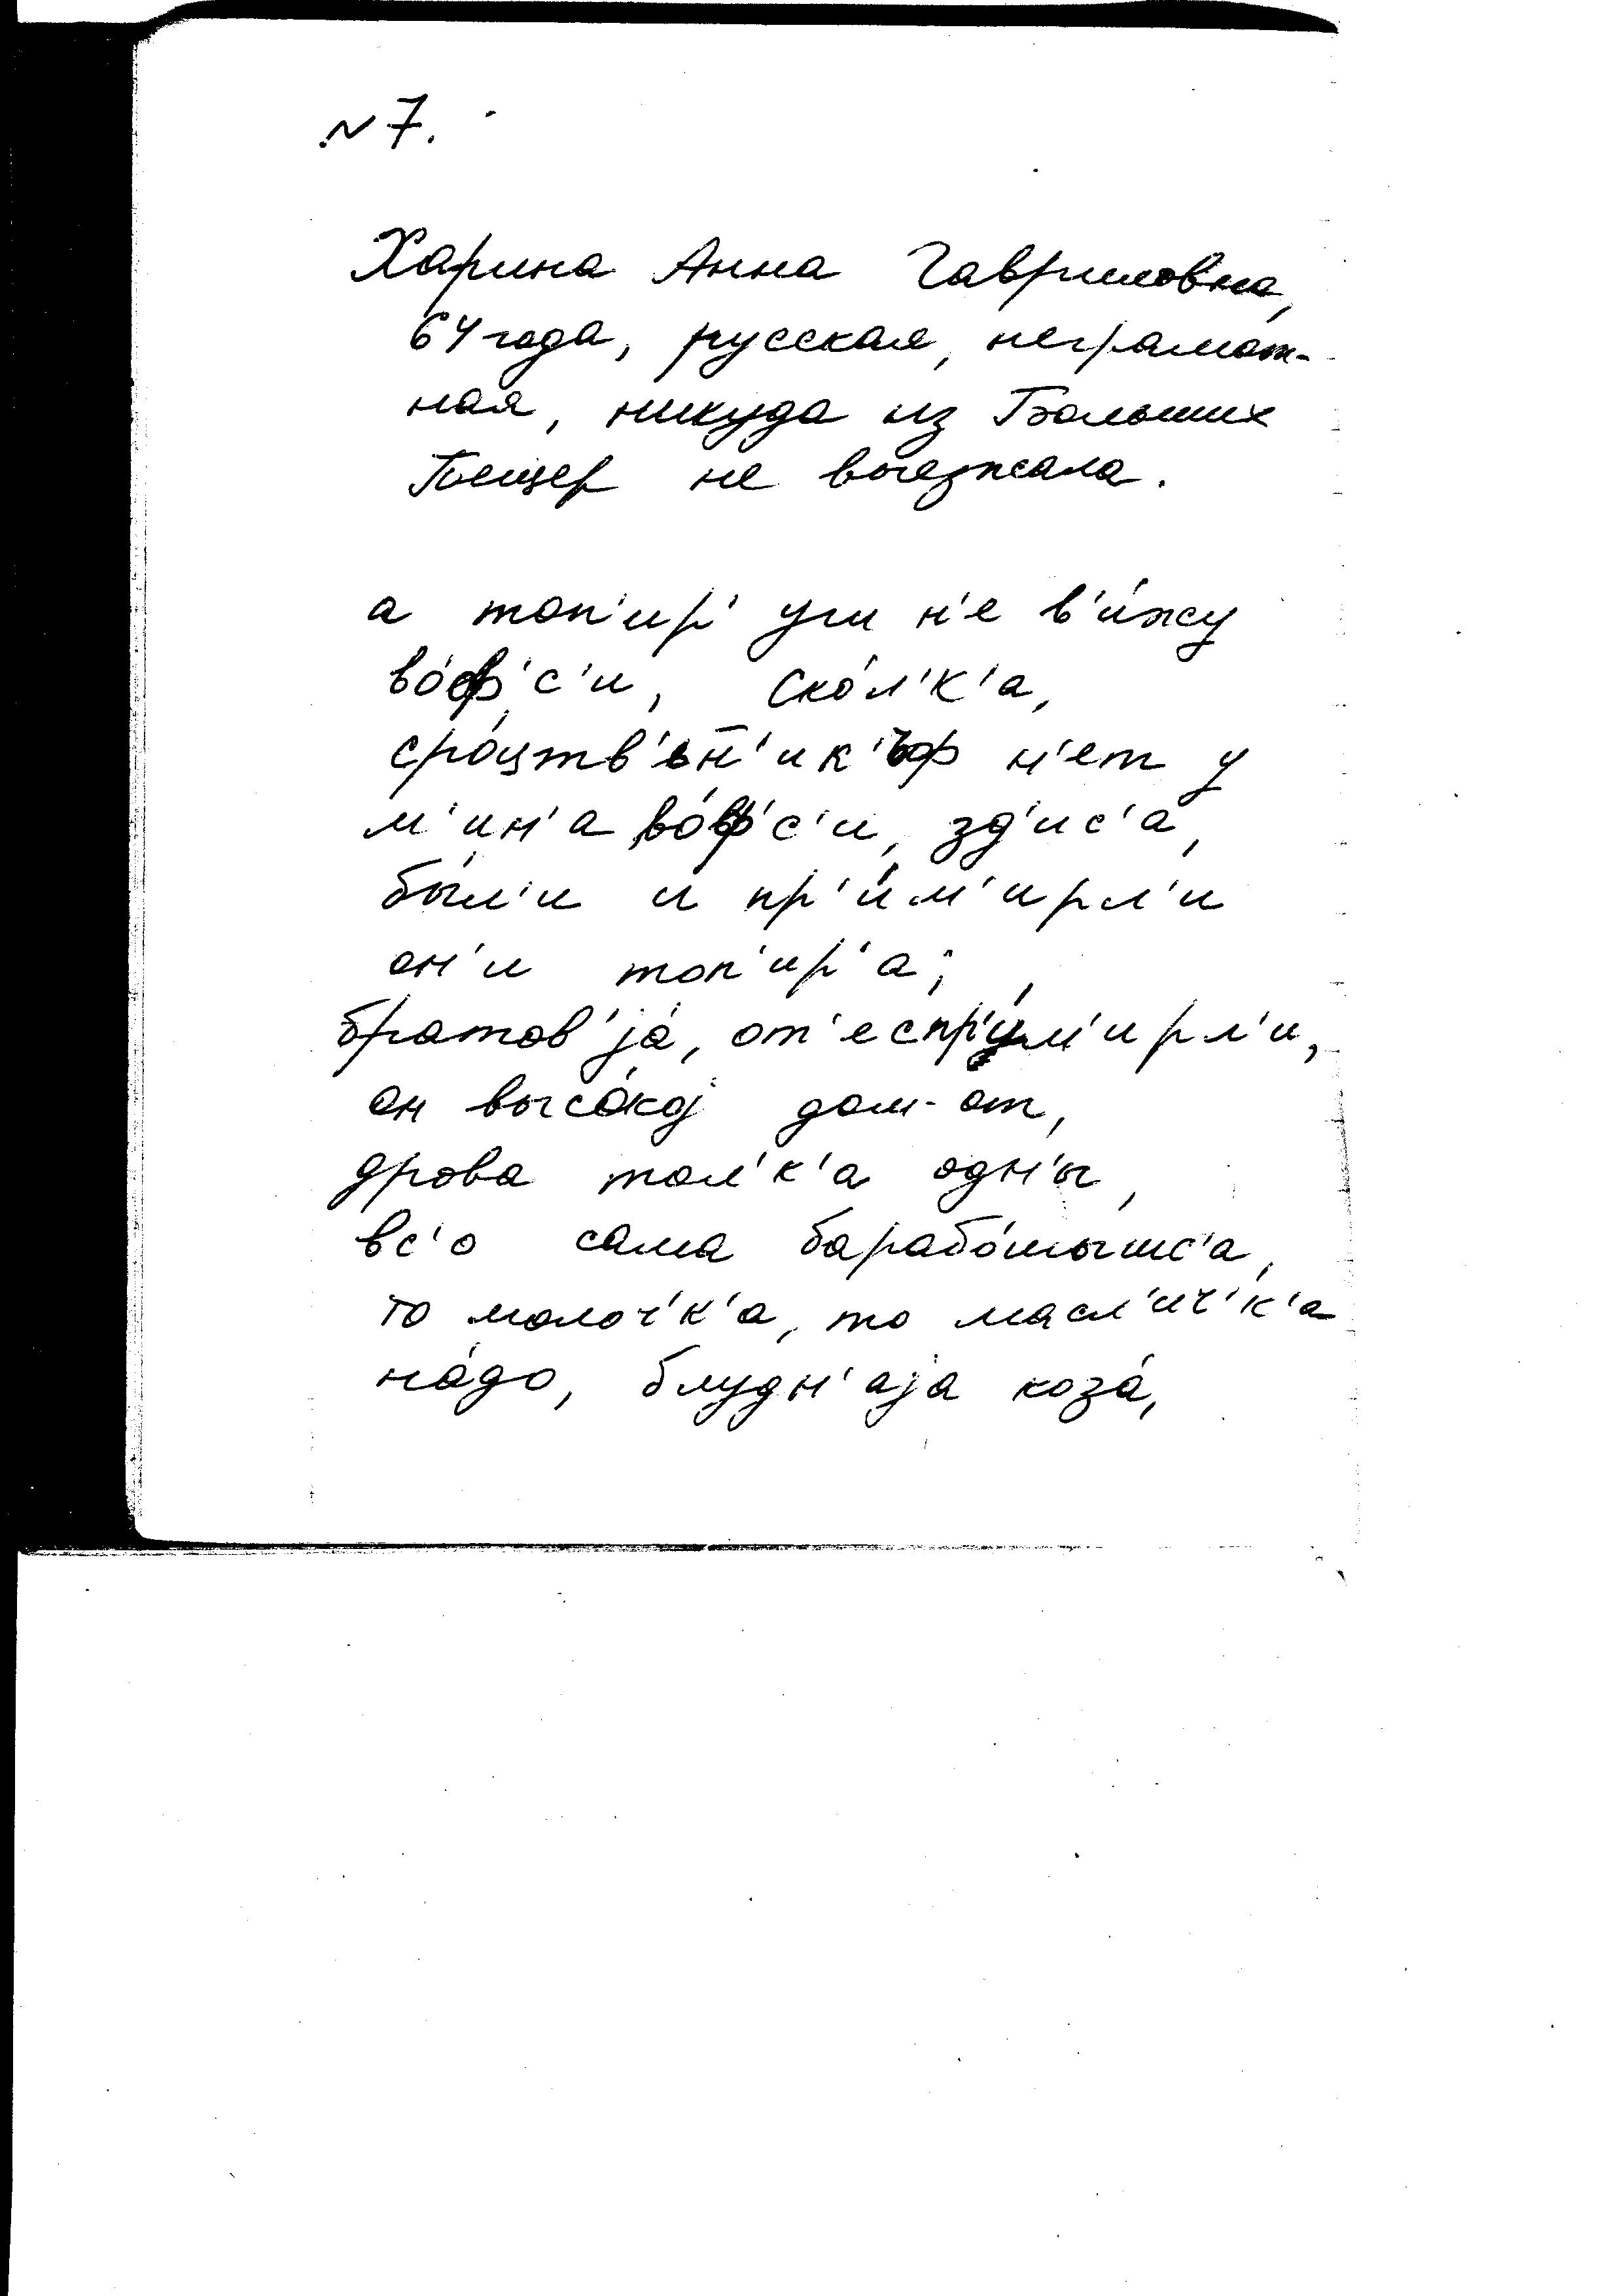 N 7.
Харина Анна Гавриловна,
64 года, русская, неграмот-
ная, никуда из Больших
Пещер не выезжала.
а топ'ир' уш н'е в'и́жу
во́ф'с'и, ско́л'к'а,
сро́цтв'ьн̄'ик'ъф н'ет у
м'ин'а во́ф'с'и, зд'ис'а,
бы́л'и и пр'и́м'ирл'и
он'и топ'ир'а;
братов'jа́, от'ес пр'и́м'ирл'и,
он высо́коj дом-от,
дрова тол'к'а одн'ы,
вс'о сама барабо́шышс'а,
то молоч'к'а, то масл'ич'к'а
на́до, блудн'аjа коза́,